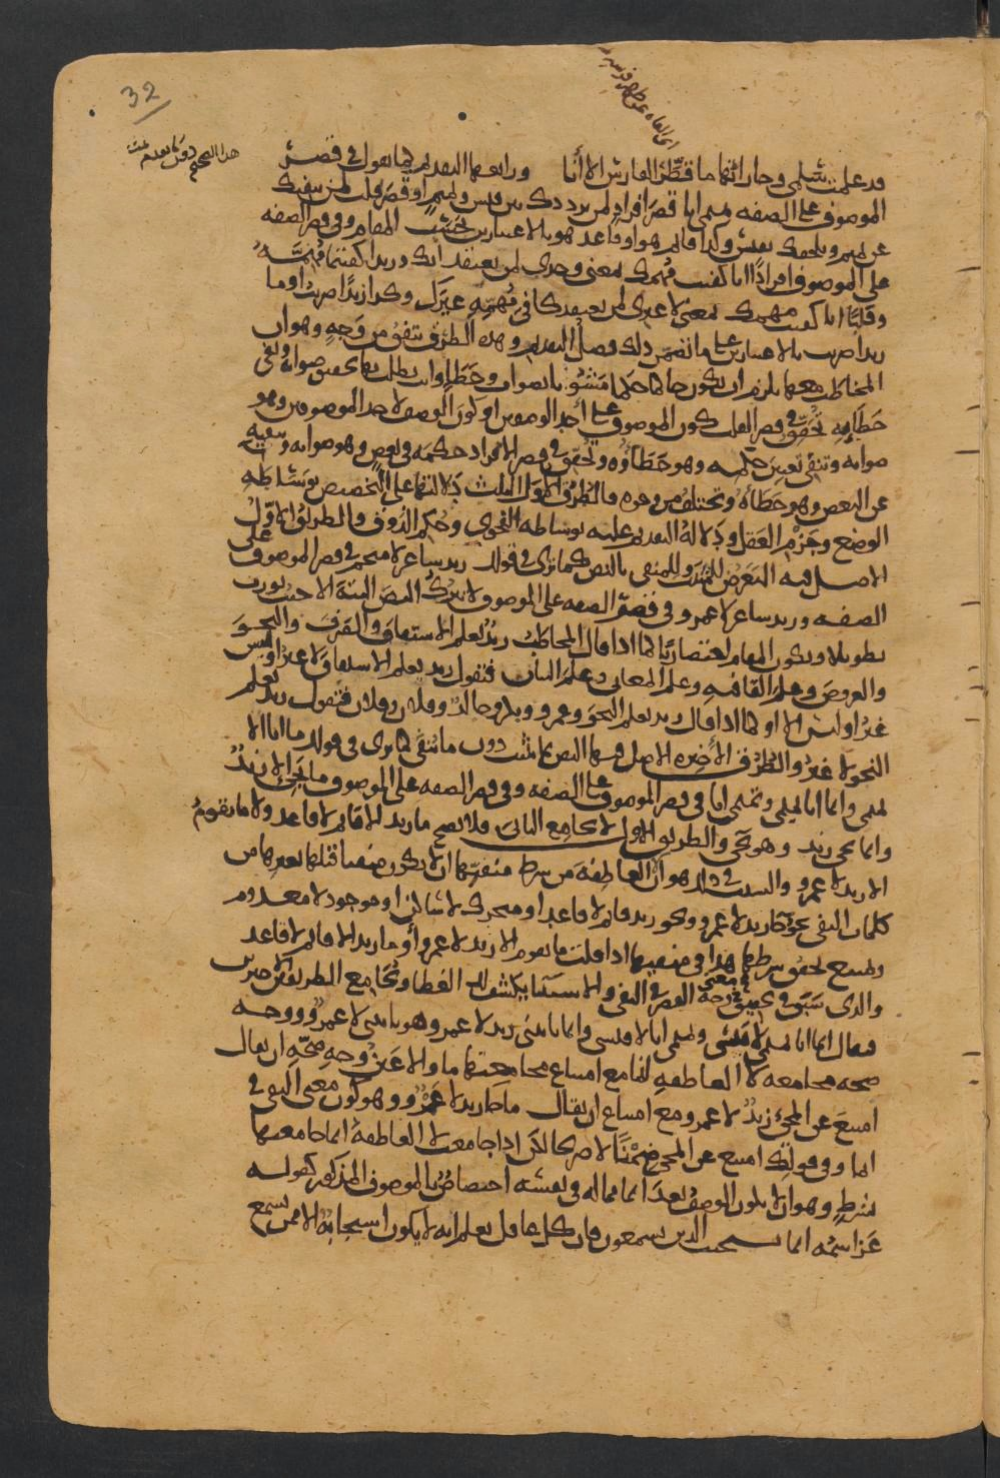 32
قد علمت سلمى وجاراتها ما قطر الفارس الا أنا ورابعها التقديم كما تقول في قصر
الموصوف على الصفة تميمي انا قصر افراد لمن يرددك بين قيس وتميم او قصر قلب لمن ينفيك
عن تميم ويلحقك بقيس وكذا قائم هو او قاعد هو بالاعتبارين بحسب المقام وفي قصر الصفة
على الموصوف افرادا انا كفيت مهمك بمعنى وحدي لمن يعتقد انك وزيدا كفيتما مهمه
وقلبا انا كفيت مهمك بمعنى لا غيري لمن يعتقد كافي مهمه غيرك وكذا زيدا ضربت او ما
زيدا ضربت بالاعتبارين على ما تضمن ذلك فصل التقديم وهذه الطرق تتفق من وجه وهو ان
المخاطب معها يلزم ان يكون حاكما حكما مشوبا بصواب وخطإ وانت تطلب بها تحقيق صوابه ونفي
خطائه تحقق في قصر القلب كون الموصوف على أحد الوصفين او كون الوصف لاحد الموصوفين وهو
صوابه وتنفي تعيين حكمه وهو خطاؤه وتحقق في قصر الافراد حكمه في بعض وهو صوابه وتنفيه
عن البعض وهو خطاؤه وتختلف من وجوه فالطرق الاول الثلث دلالتها على التخصيص بوساطة
الوضع وجزم العقل ودلالة التقديم عليه بوساطة الفحوى وحكم الذوق والطريق الاول
الاصل فيه التعرض للمثبت وللمنفي بالنص كما ترى في قولك زيد شاعر لا منجم في قصر الموصوف على
الصفة وزيد شاعر لا عمرو في قصر الصفة على الموصوف لا يترك النص البتة الا حيث يورث
تطويلا ويكون المقام اختصاريا كما اذا قال المخاطب زيد يعلم الاشتقاق والصرف والنحو
والعروض وعلم القافية وعلم المعاني وعلم البيان فتقول زيد يعلم الاشتقاق لا غير او ليس
غير او ليس الا او كما اذا قال زيد يعلم النحو وعمرو وبكر وخالد وفلان وفلان فتقول زيد يعلم
النحو لا غير والطرق الأخيرة الاصل فيها النص بما يثبت دون ما ينفى كما ترى في قولك ما انا الا
تميمي وانما انا تميمي وتميمي انا في قصر الموصوف على الصفة وفي قصر الصفة على الموصوف ما يجي الا زيد
وانما يجي زيد وهو يجي والطريق الاول لا يجامع الثاني فلا يصح ما زيد الا قائم لا قاعد ولا ما يقوم
الا زيد لا عمرو والسبب في ذلك هو ان لا العاطفة من شرط منفيها ان لا يكون منفيا قبلها بغيرها من
كلمات النفي نحو جاء زيد لا عمرو ونحو زيد قائم لا قاعد او متحرك لا ساكن او موجود لا معدوم
ويمتنع تحقق شرطها هذا في منفيها اذا قلت ما يقوم الا زيد لا عمرو أو ما زيد الا قائم لا قاعد
والذي سبق في تحقيق وجه القصر في النفي والاستثناء يكشف لك الغطا ويجامع الطريقين الاخيرين
فيقال انما انا تميمي لا قيسي وتميمي انا لا قيسي وانما ياتيني زيد لا عمرو وهو ياتيني لا عمرو ووجه
صحة مجامعة لا العاطفة انما مع امتناع مجامعتها ما والا عين وجه صحة ان يقال
امتنع عن المجيء زيد لا عمرو مع امتناع ان يقال ما جاء زيد لا عمرو وهو كون معنى النفي في
انما وفي قولك امتنع عن المجي ضمنا لا صريحا لكن اذا جامعت لا العاطفة انما جامعتها
بشرط وهو ان لا يكون الوصف بعد انما مما له في نفسه اختصاص بالموصوف المذكور كقوله
عز اسمه انما يستجيب الذين يسمعون فان كل عاقل يعلم انه لا يكون استجابة الا ممن يسمع